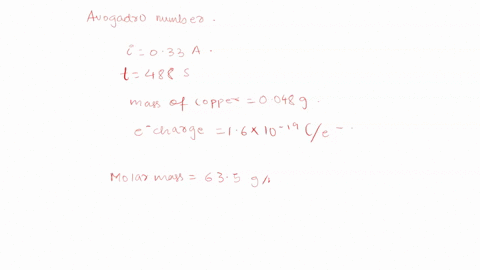 Avogadro number.
i = 0.33 A.
t = 488 S
mass of copper = 0.048 g.
e⁻ charge = 1.6 × 10⁻¹⁹ C/e⁻.
Molar mass = 63.5 g/